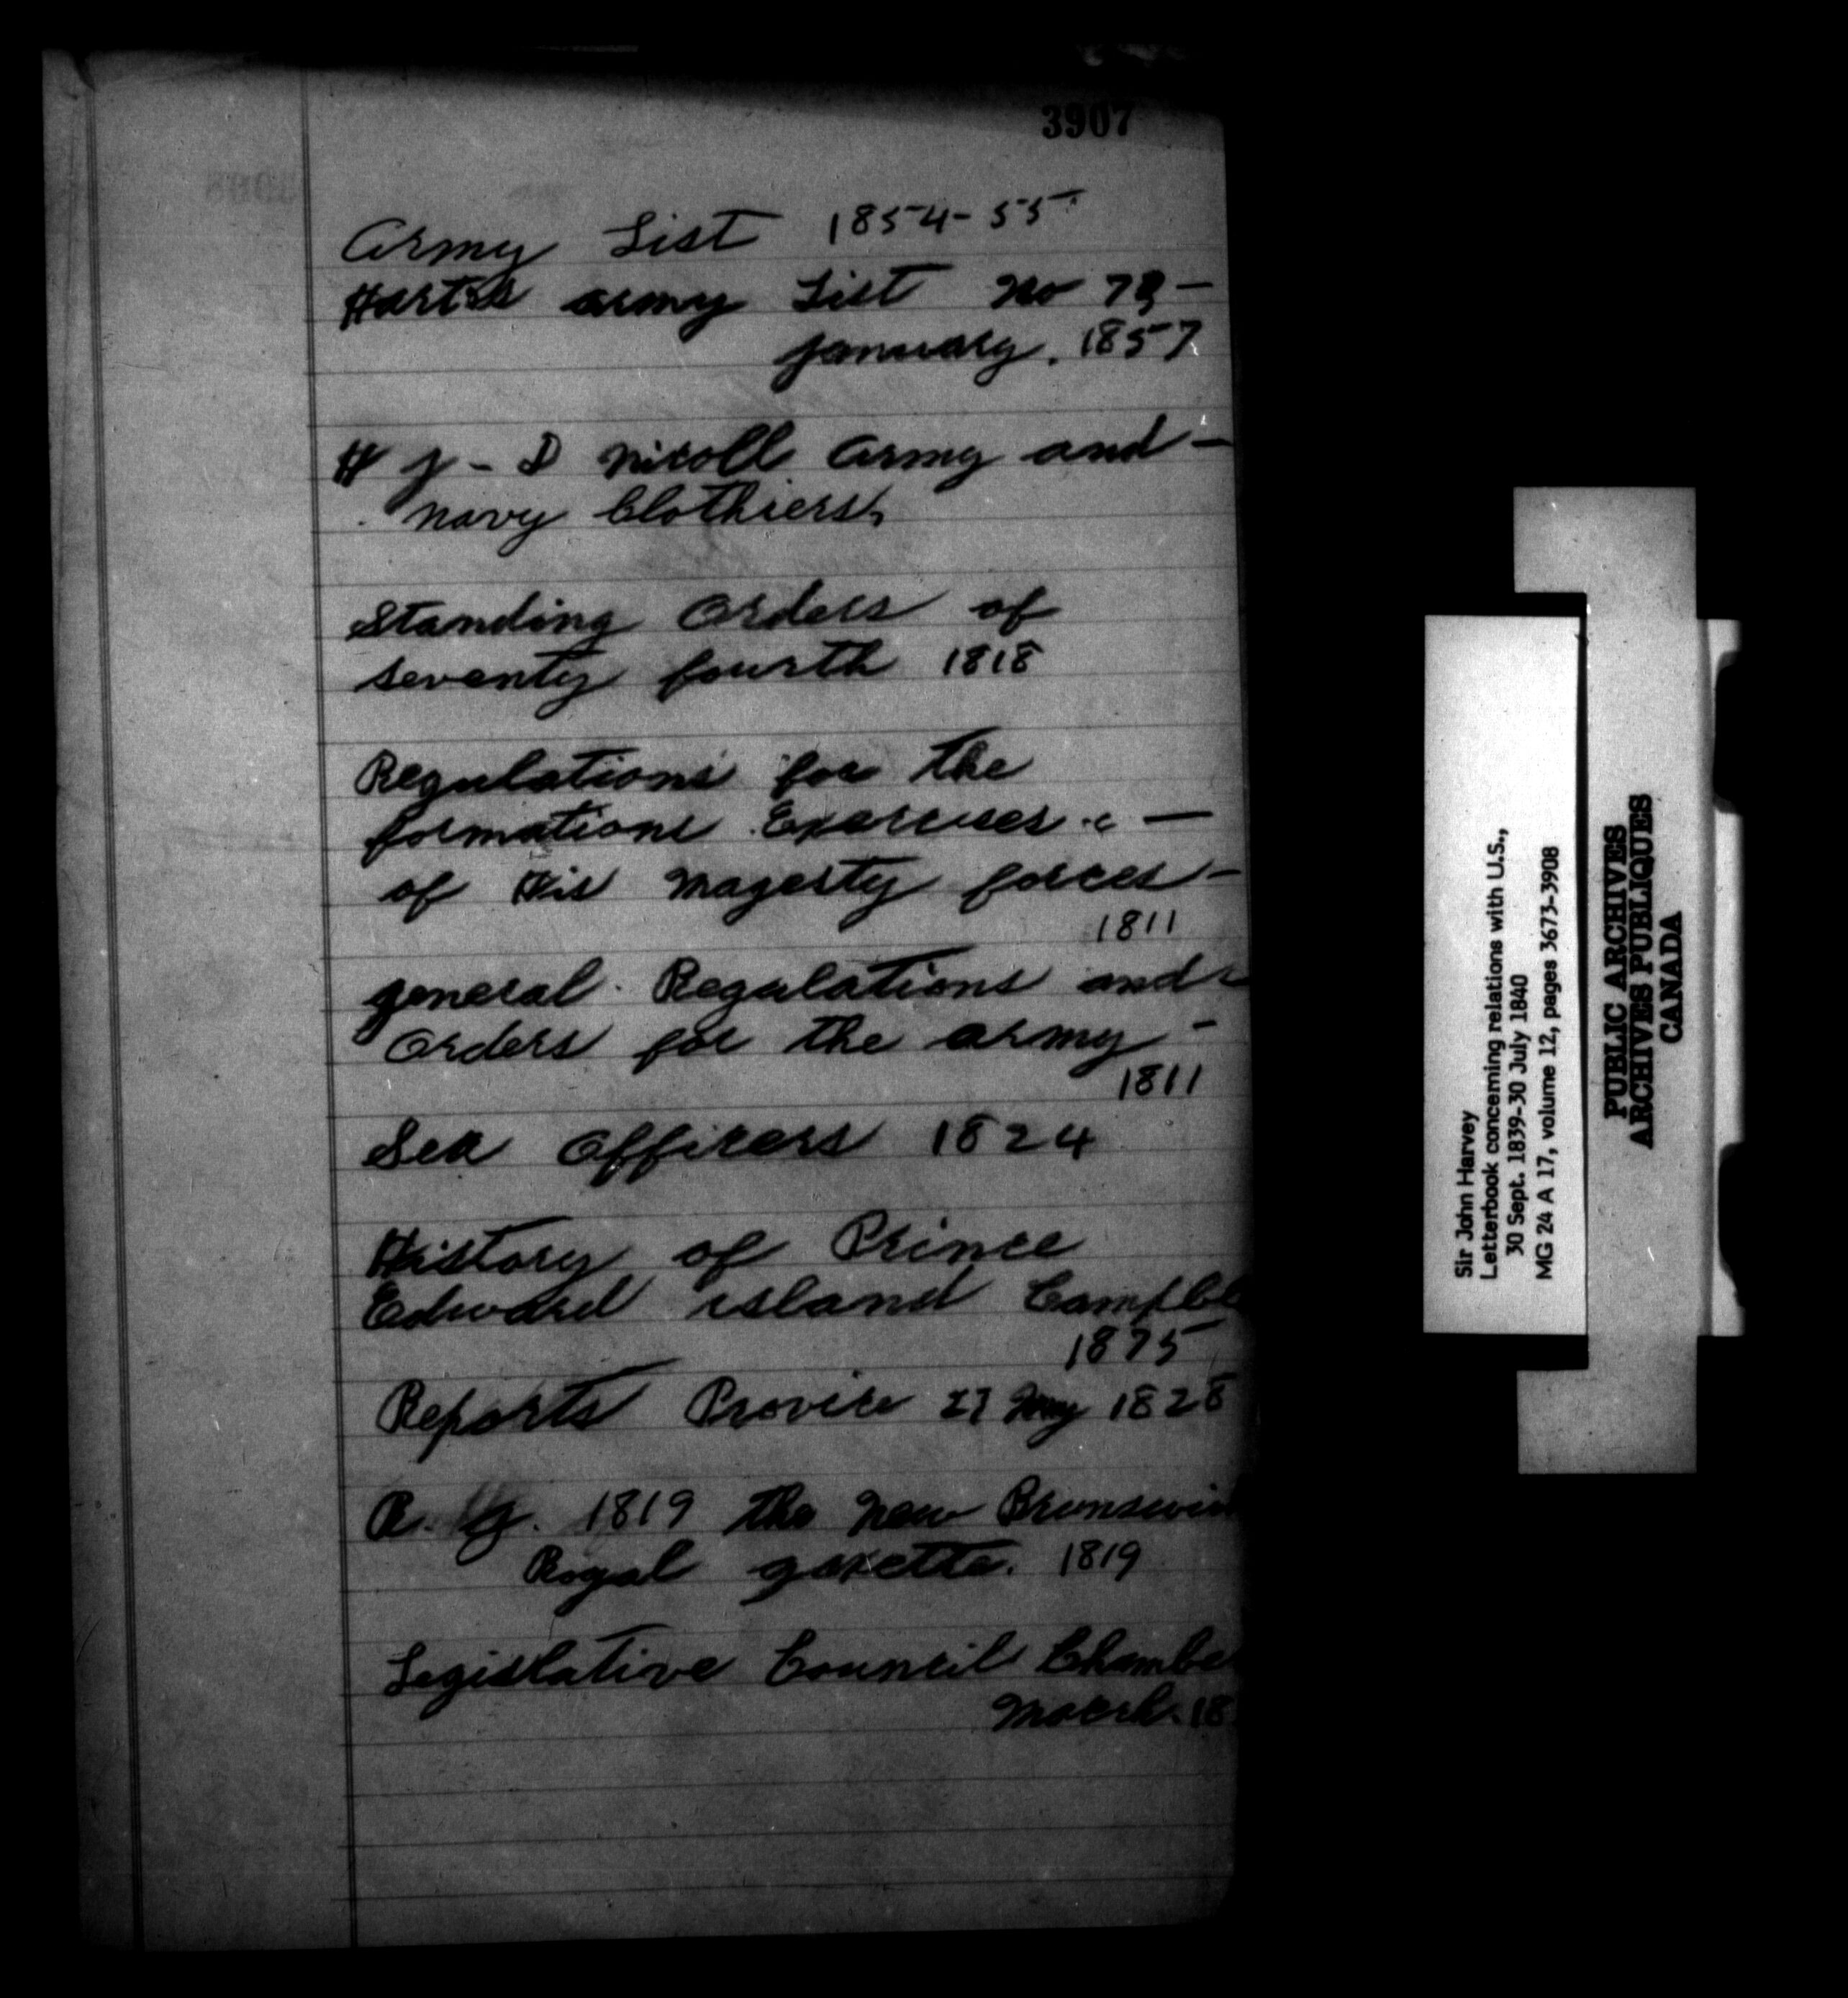 3907
Army List 1854-55
Hart's army List No 73 -
January. 1857
H J - D Nicoll Army and -
Navy Clothiers,
Standing Orders of
Seventy fourth 1818
Regulations for the
formations Exercises &c —
of His Magesty forces -
1811
General Regulations and -
Orders for the army -
1811
Sea Officers 1824
History of Prince
Edward island Campbe
1875
Reports Provice 27 May 1828
R. G. 1819 the New Brunswi
Royal gazette. 1819
Legislative Council Chambe
March. 18
Sir John Harvey
Letterbook concerning relations with U.S.,
30 Sept. 1839-30 July 1840
MG 24 A 17, volume 12, pages 3673-3908
PUBLIC ARCHIVES
ARCHIVES PUBLIQUES
CANADA